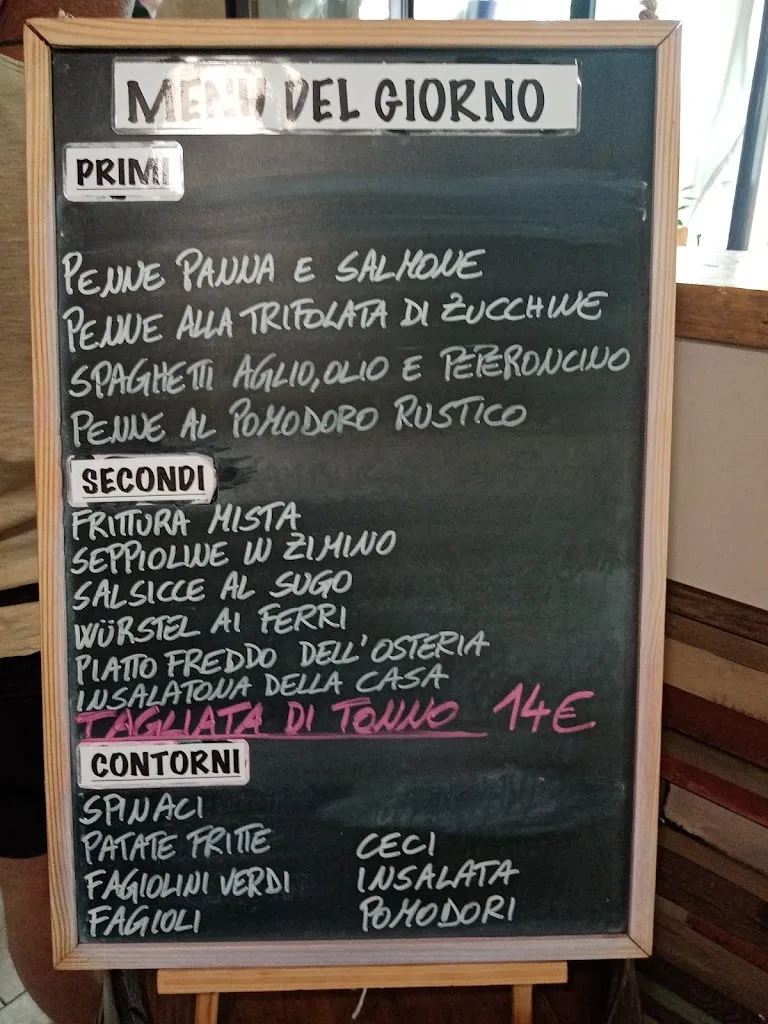 MENÙ DEL GIORNO
PRIMI
PENNE PANNA E SALMONE
PENNE ALLA TRIFOLATA DI ZUCCHINE
SPAGHETTI AGLIO, OLIO E PEPERONCINO
PENNE AL POMODORO RUSTICO
SECONDI
FRITTURA MISTA
SEPPIOLINE IN ZIMINO
SALSICCE AL SUGO
WÜRSTEL AI FERRI
PIATTO FREDDO DELL'OSTERIA
INSALATONA DELLA CASA
TAGLIATA DI TONNO 14€
CONTORNI
SPINACI
PATATE FRITTE CECI
FAGIOLINI VERDI INSALATA
FAGIOLI POMODORI